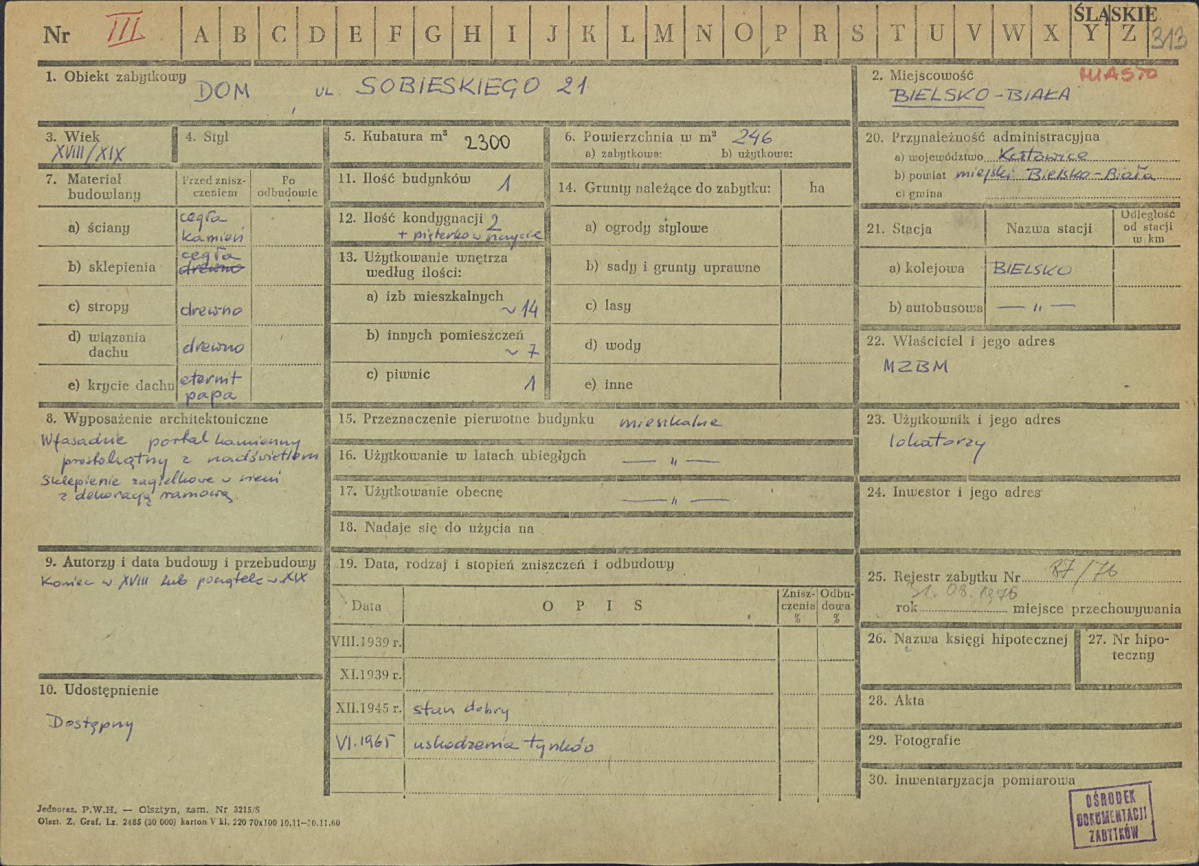 Nr III A B C D E F G H I J K L M N O P R S T U V W X Y Z
ŚLĄSKIE
313
1. Obiekt zabytkowy DOM ul. SOBIESKIEGO 21
2. Miejscowość MIASTO
BIELSKO-BIAŁA
3. Wiek
XVIII/XIX
4. Styl
5. Kubatura m³ 2300
6. Powierzchnia w m² 246
a) zabytkowa: b) użytkowa:
20. Przynależność administracyjna
a) województwo Katowice
b) powiat miejski Bielsko-Biała
c) gmina
7. Materiał budowlany
Przed zniszczeniem
Po odbudowie
a) ściany cegła kamień
b) sklepienia cegła drewno
c) stropy drewno
d) wiązania dachu drewno
e) krycie dachu eternit papa
11. Ilość budynków 1
12. Ilość kondygnacji 2
+ pięterko w szczycie
13. Użytkowanie wnętrza
według ilości:
a) izb mieszkalnych
~14
b) innych pomieszczeń
~7
c) piwnic 1
14. Grunty należące do zabytku: ha
a) ogrody stylowe
b) sady i grunty uprawne
c) lasy
d) wody
e) inne
21. Stacja
Nazwa stacji
Odległość
od stacji
w km
a) kolejowa BIELSKO
b) autobusowa — " —
22. Właściciel i jego adres
MZBM
8. Wyposażenie architektoniczne
W fasadzie portal kamienny
prostokątny z nadświetlem
Sklepienie żagielkowe w sieni
z dekoracją ramową.
15. Przeznaczenie pierwotne budynku mieszkalne
16. Użytkowanie w latach ubiegłych — " —
17. Użytkowanie obecne — " —
18. Nadaje się do użycia na
23. Użytkownik i jego adres
lokatorzy
24. Inwestor i jego adres
9. Autorzy i data budowy i przebudowy
Koniec w XVIII lub początek w XIX
19. Data, rodzaj i stopień zniszczeń i odbudowy
Data
O P I S
Znisz-
czenia
%
Odbu-
dowa
%
VIII.1939 r.
XI.1939 r.
XII.1945 r. stan dobry
VI.1965 uszkodzenia tynków
25. Rejestr zabytku Nr 87/76
31.08.1976
rok miejsce przechowywania
26. Nazwa księgi hipotecznej
27. Nr hipo-
teczny
10. Udostępnienie
Dostępny
28. Akta
29. Fotografie
30. Inwentaryzacja pomiarowa
OŚRODEK
DOKUMENTACJI
ZABYTKÓW
Jednoraz. P.W.H. — Olsztyn, zam. Nr 3215/S
Olszt. Z. Graf. Lz. 2485 (30 000) karton V kl. 220 70x100 10.11-30.11.60